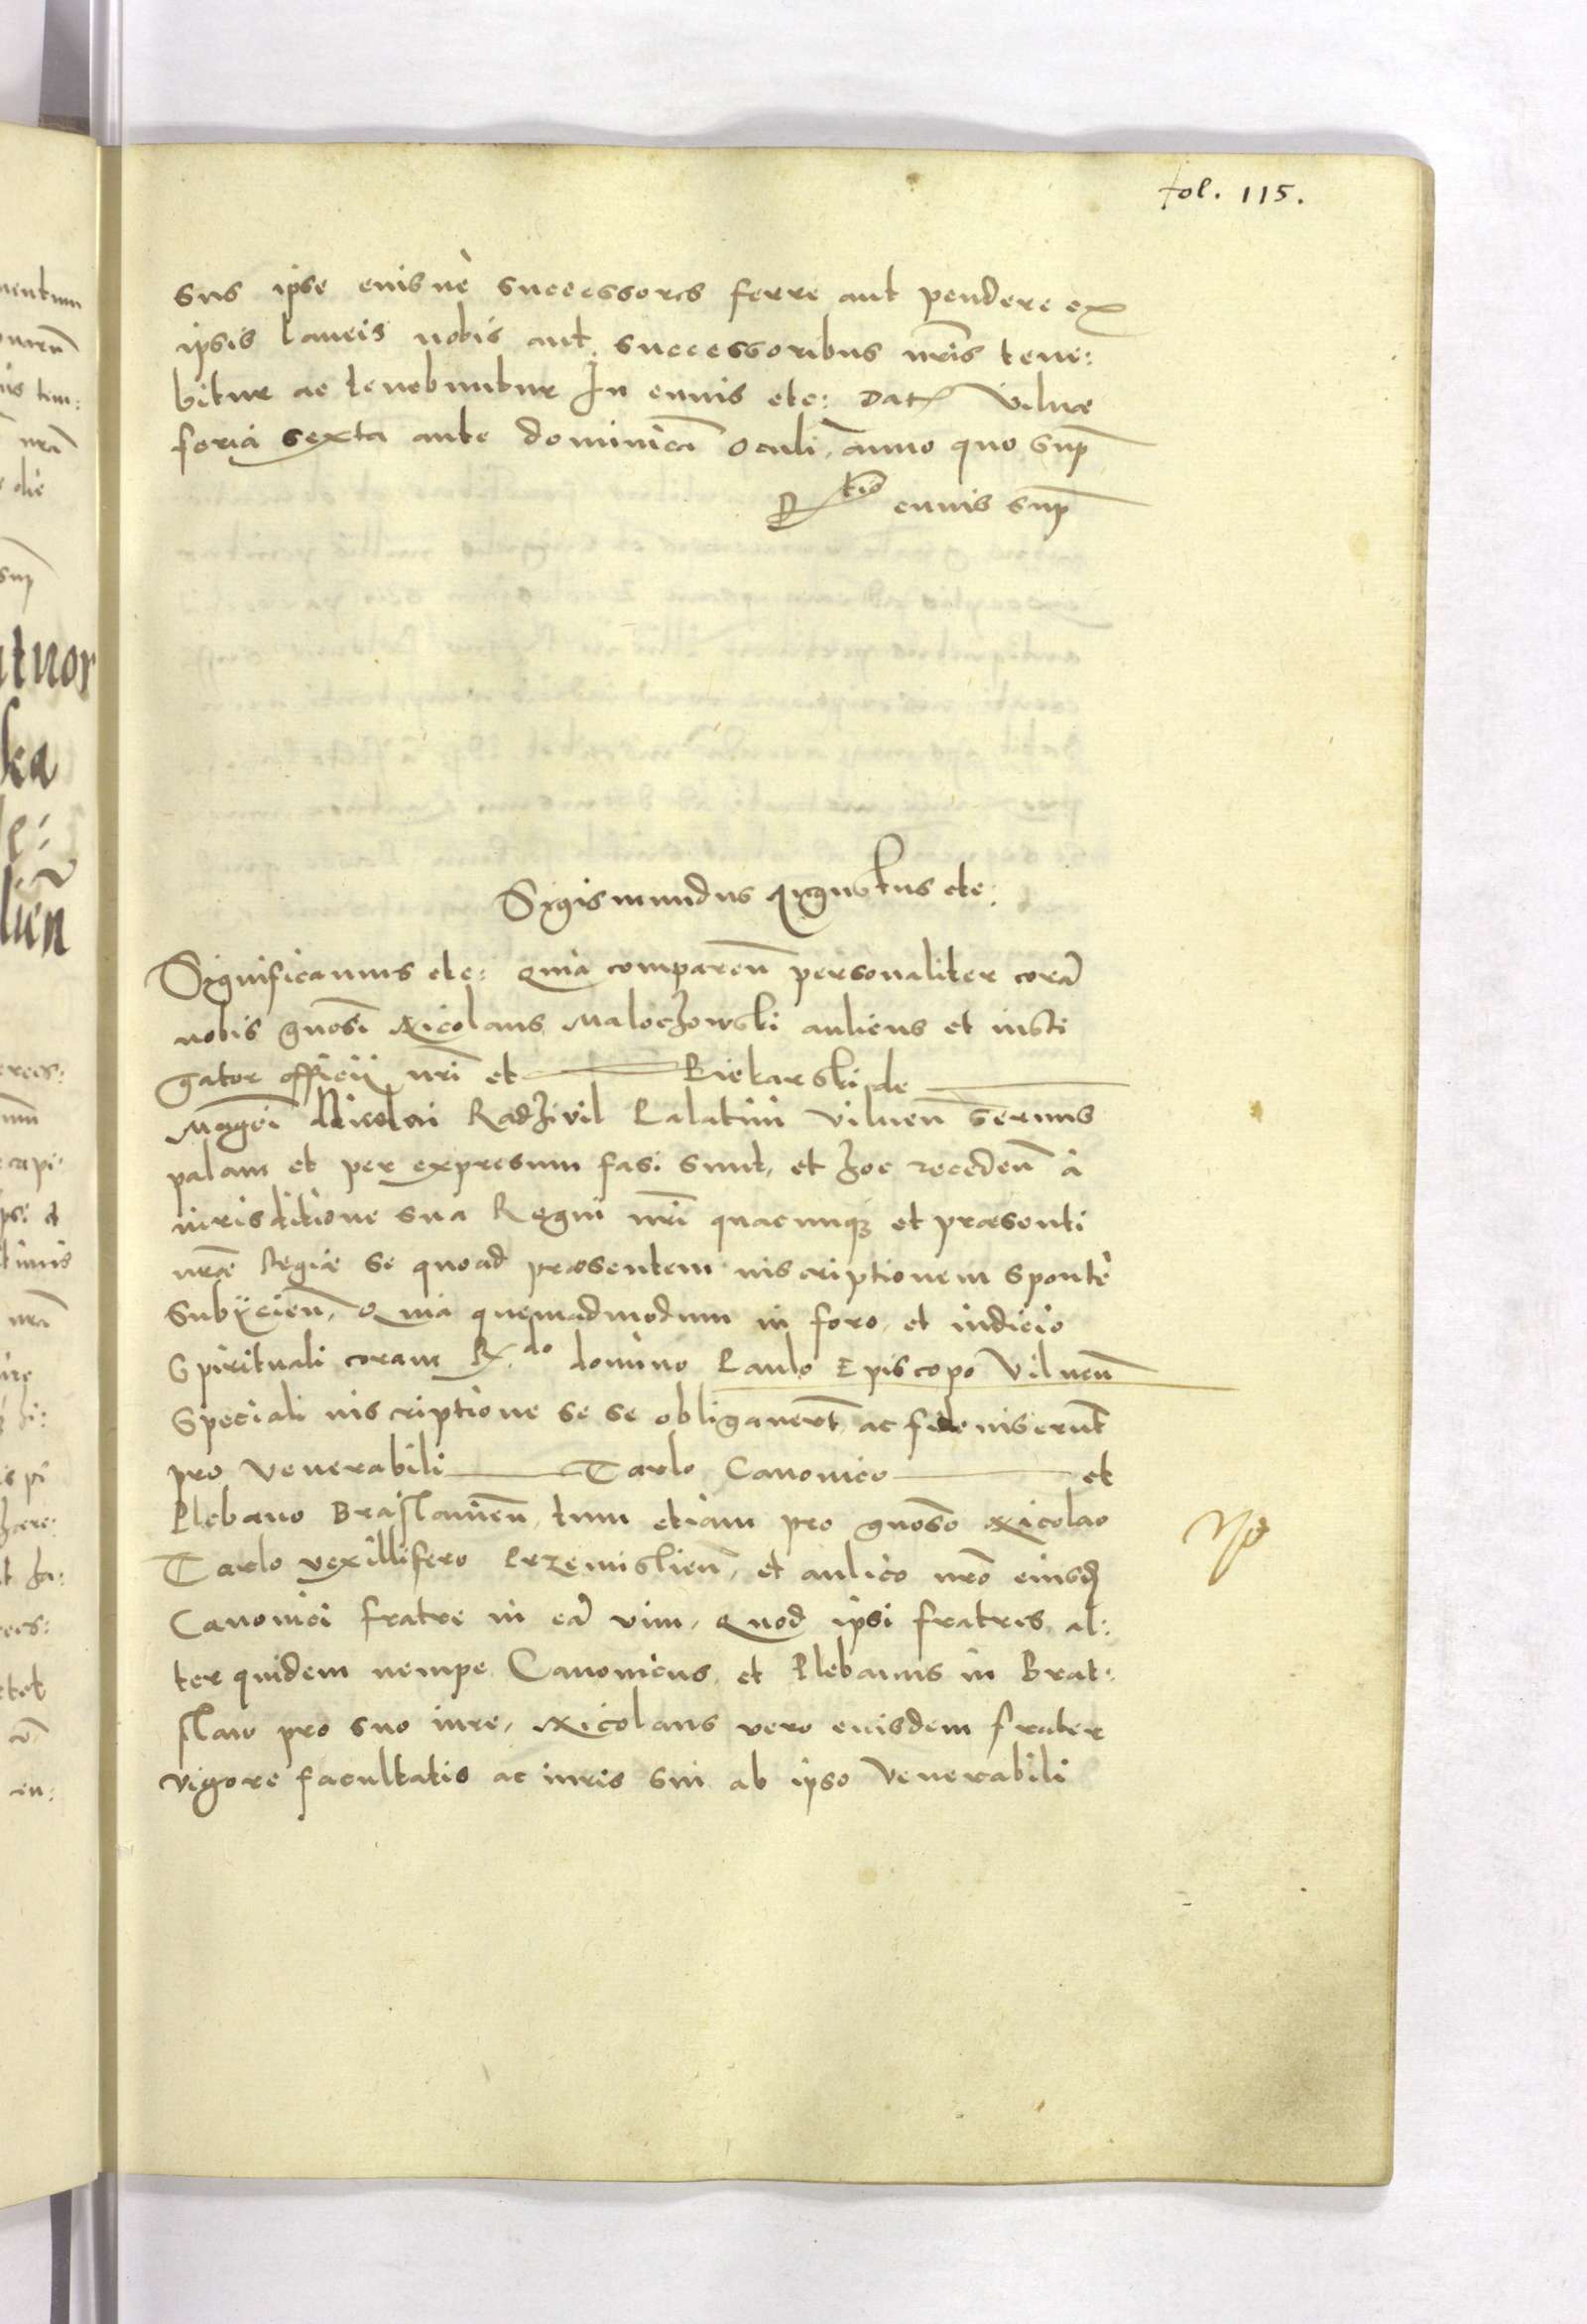 fol. 115.
sus ipse eiusve successores ferre aut pendere ex
ipsis laneis nobis aut successoribus nris tene:
bitur ac tenebuntur In cuius etc: Dat Vilnæ
feria sexta ante dominicā Oculi, anno quo sup
Rtio cuius sup
Sigismundus Augustus etc:
Significamus etc: Quia comparen̄ personaliter corā
nobis gnosi Nicolaus Malochowski aulicus et insti
gator officii nri et Piekarski de
Magci Nicolai Radzivil Palatini Vilnen servus
palam et per expresum fasi sunt, et hoc receden̄ à
iurisditione sua Regni nri quacunq3 et præsenti
nræ Regiæ se quoad præsentem inscriptionem sponte
subiicien̄, Quia quemadmodum in foro et iudicio
Spirituali coram R.do domino Paulo Episcopo Vilnen̄
speciali inscriptione se se obligaverūt ac fideiuserunt
pro Venerabili Tarlo Canonico et
Plebano Braslavien̄, tum etiam pro gnoso Nicolao
Tarlo vexillifero Przemislien̄, et aulico nro eiusd
Canonici fratre in eā vim, Quod ipsi fratres al:
ter quidem nempe Canonicus et Plebanus in Brat:
slaw pro suo iure, Nicolaus vero eiusdem frater
vigore facultatis ac iuris sui ab ipso Venerabili